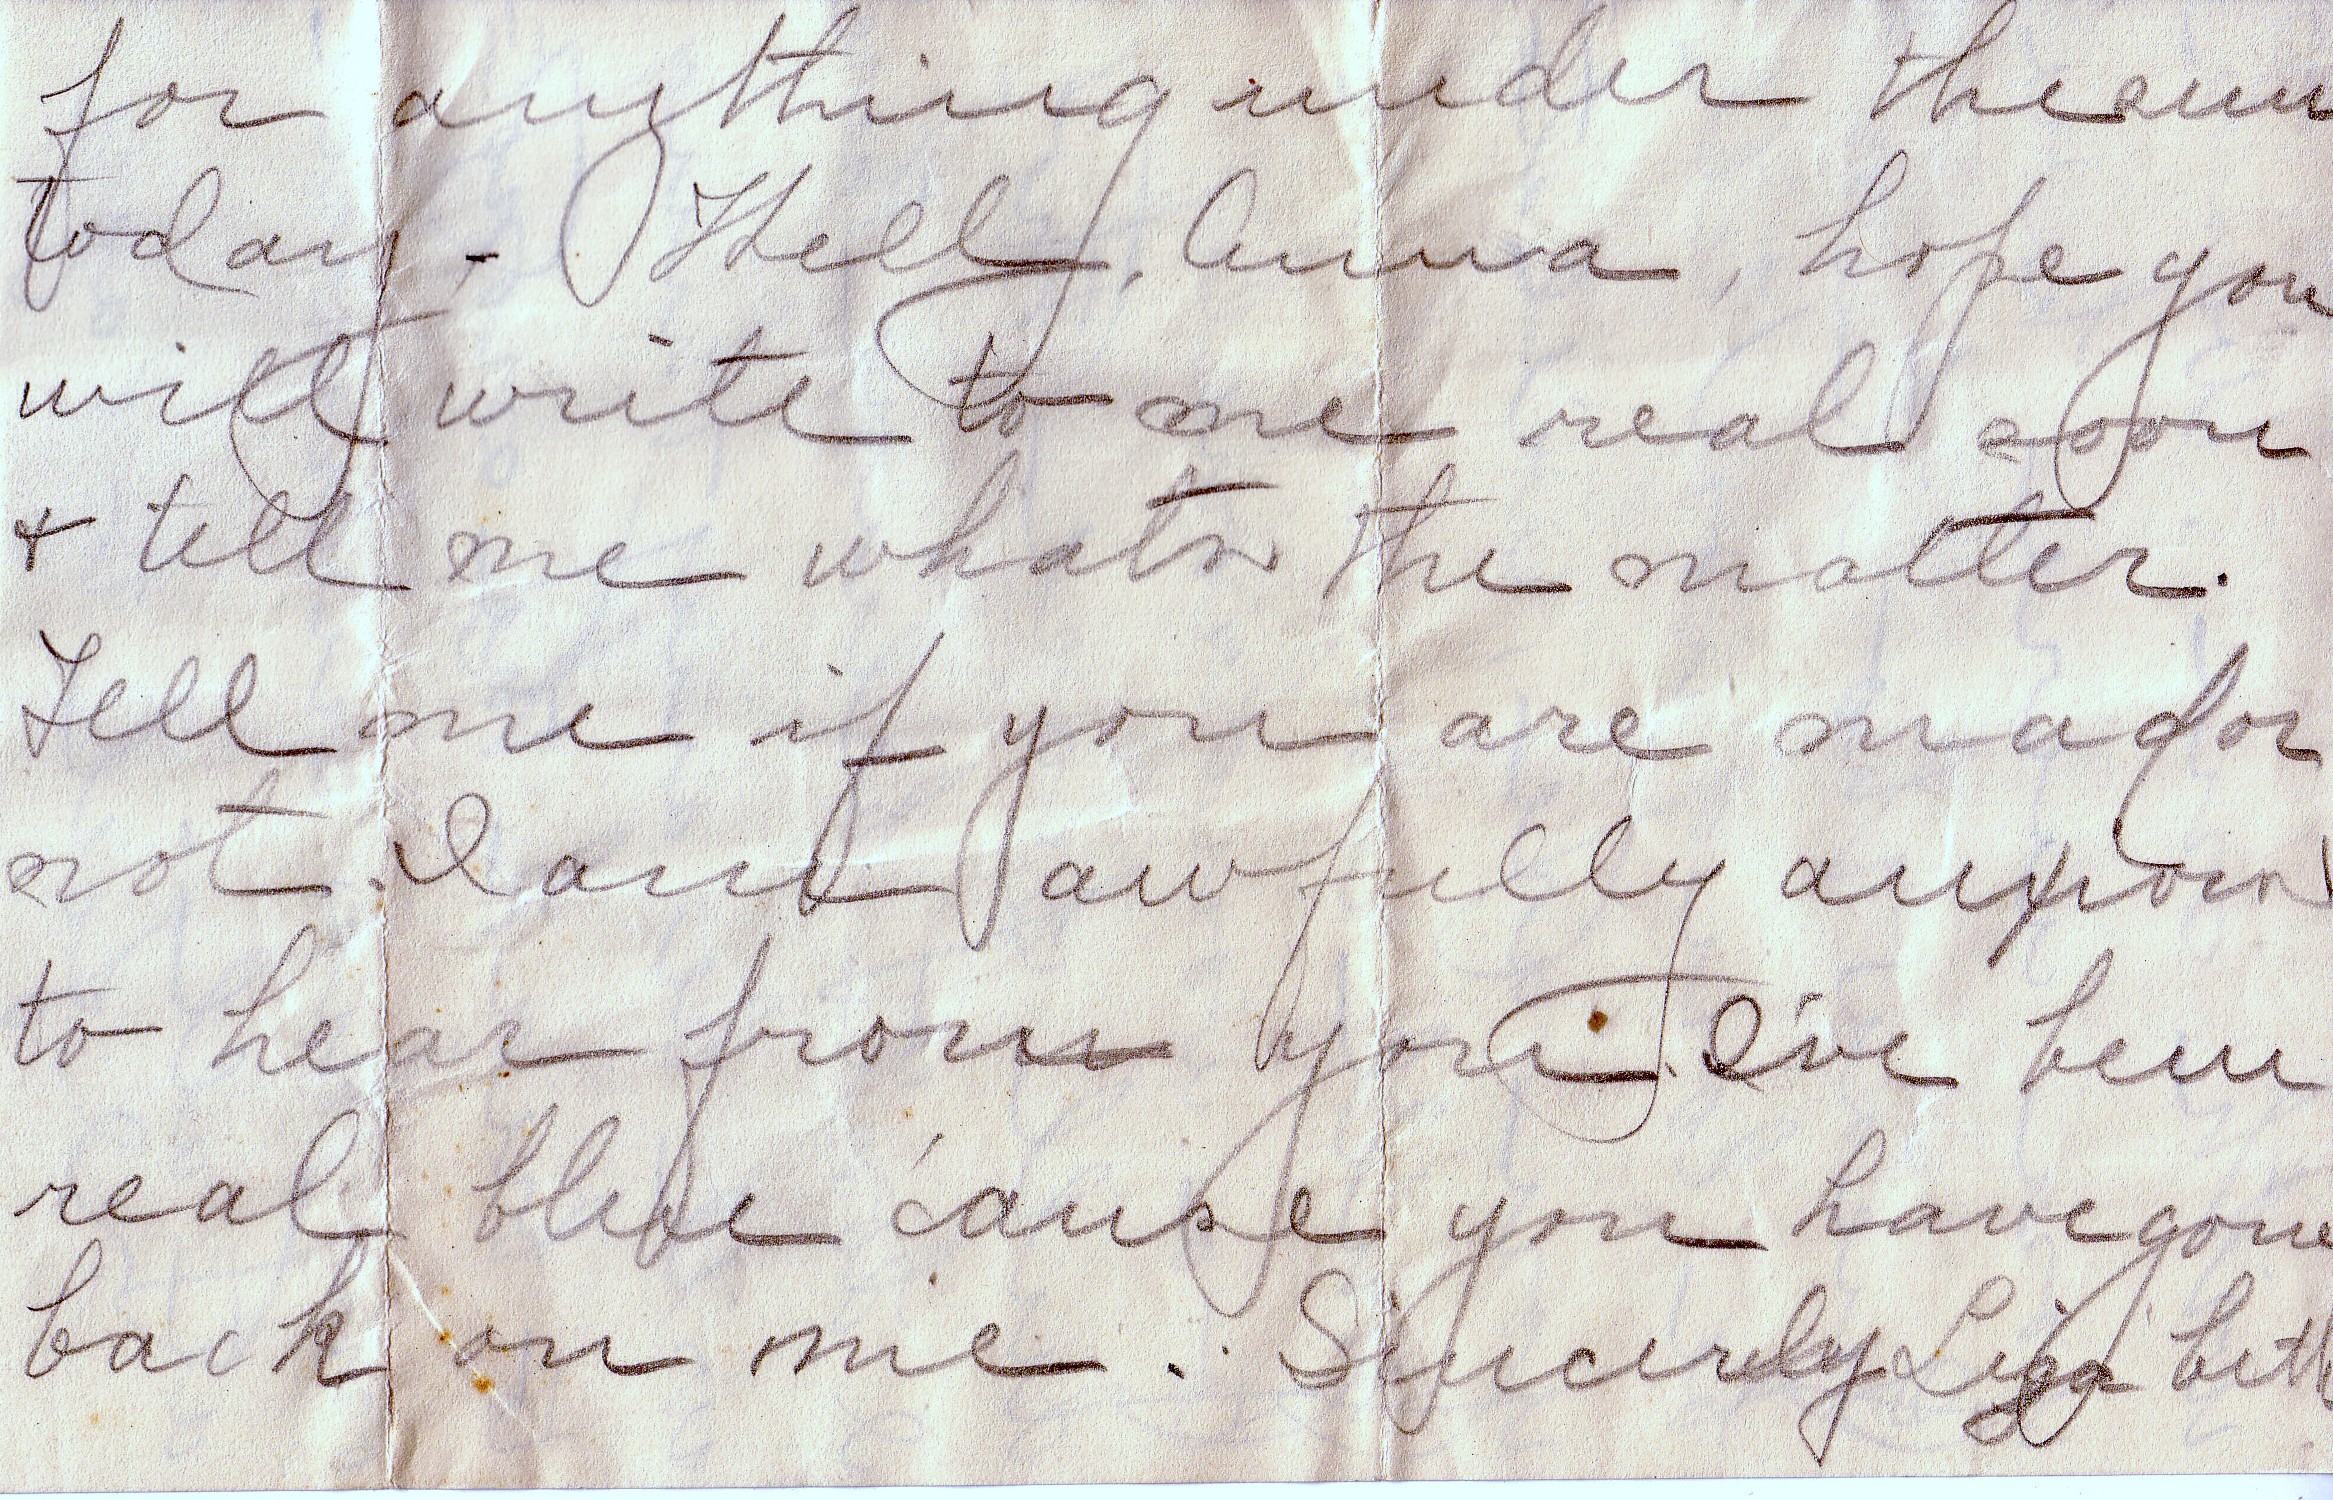 for anything under the sun
today. - Well, Anna, hope you
will write to me real soon
& tell me whats the matter.
Tell me if you are mad or
not. I am awfully anxious
to hear from you. I've been
real blue 'cause you have gone
back on me. Sincerely Liza beth